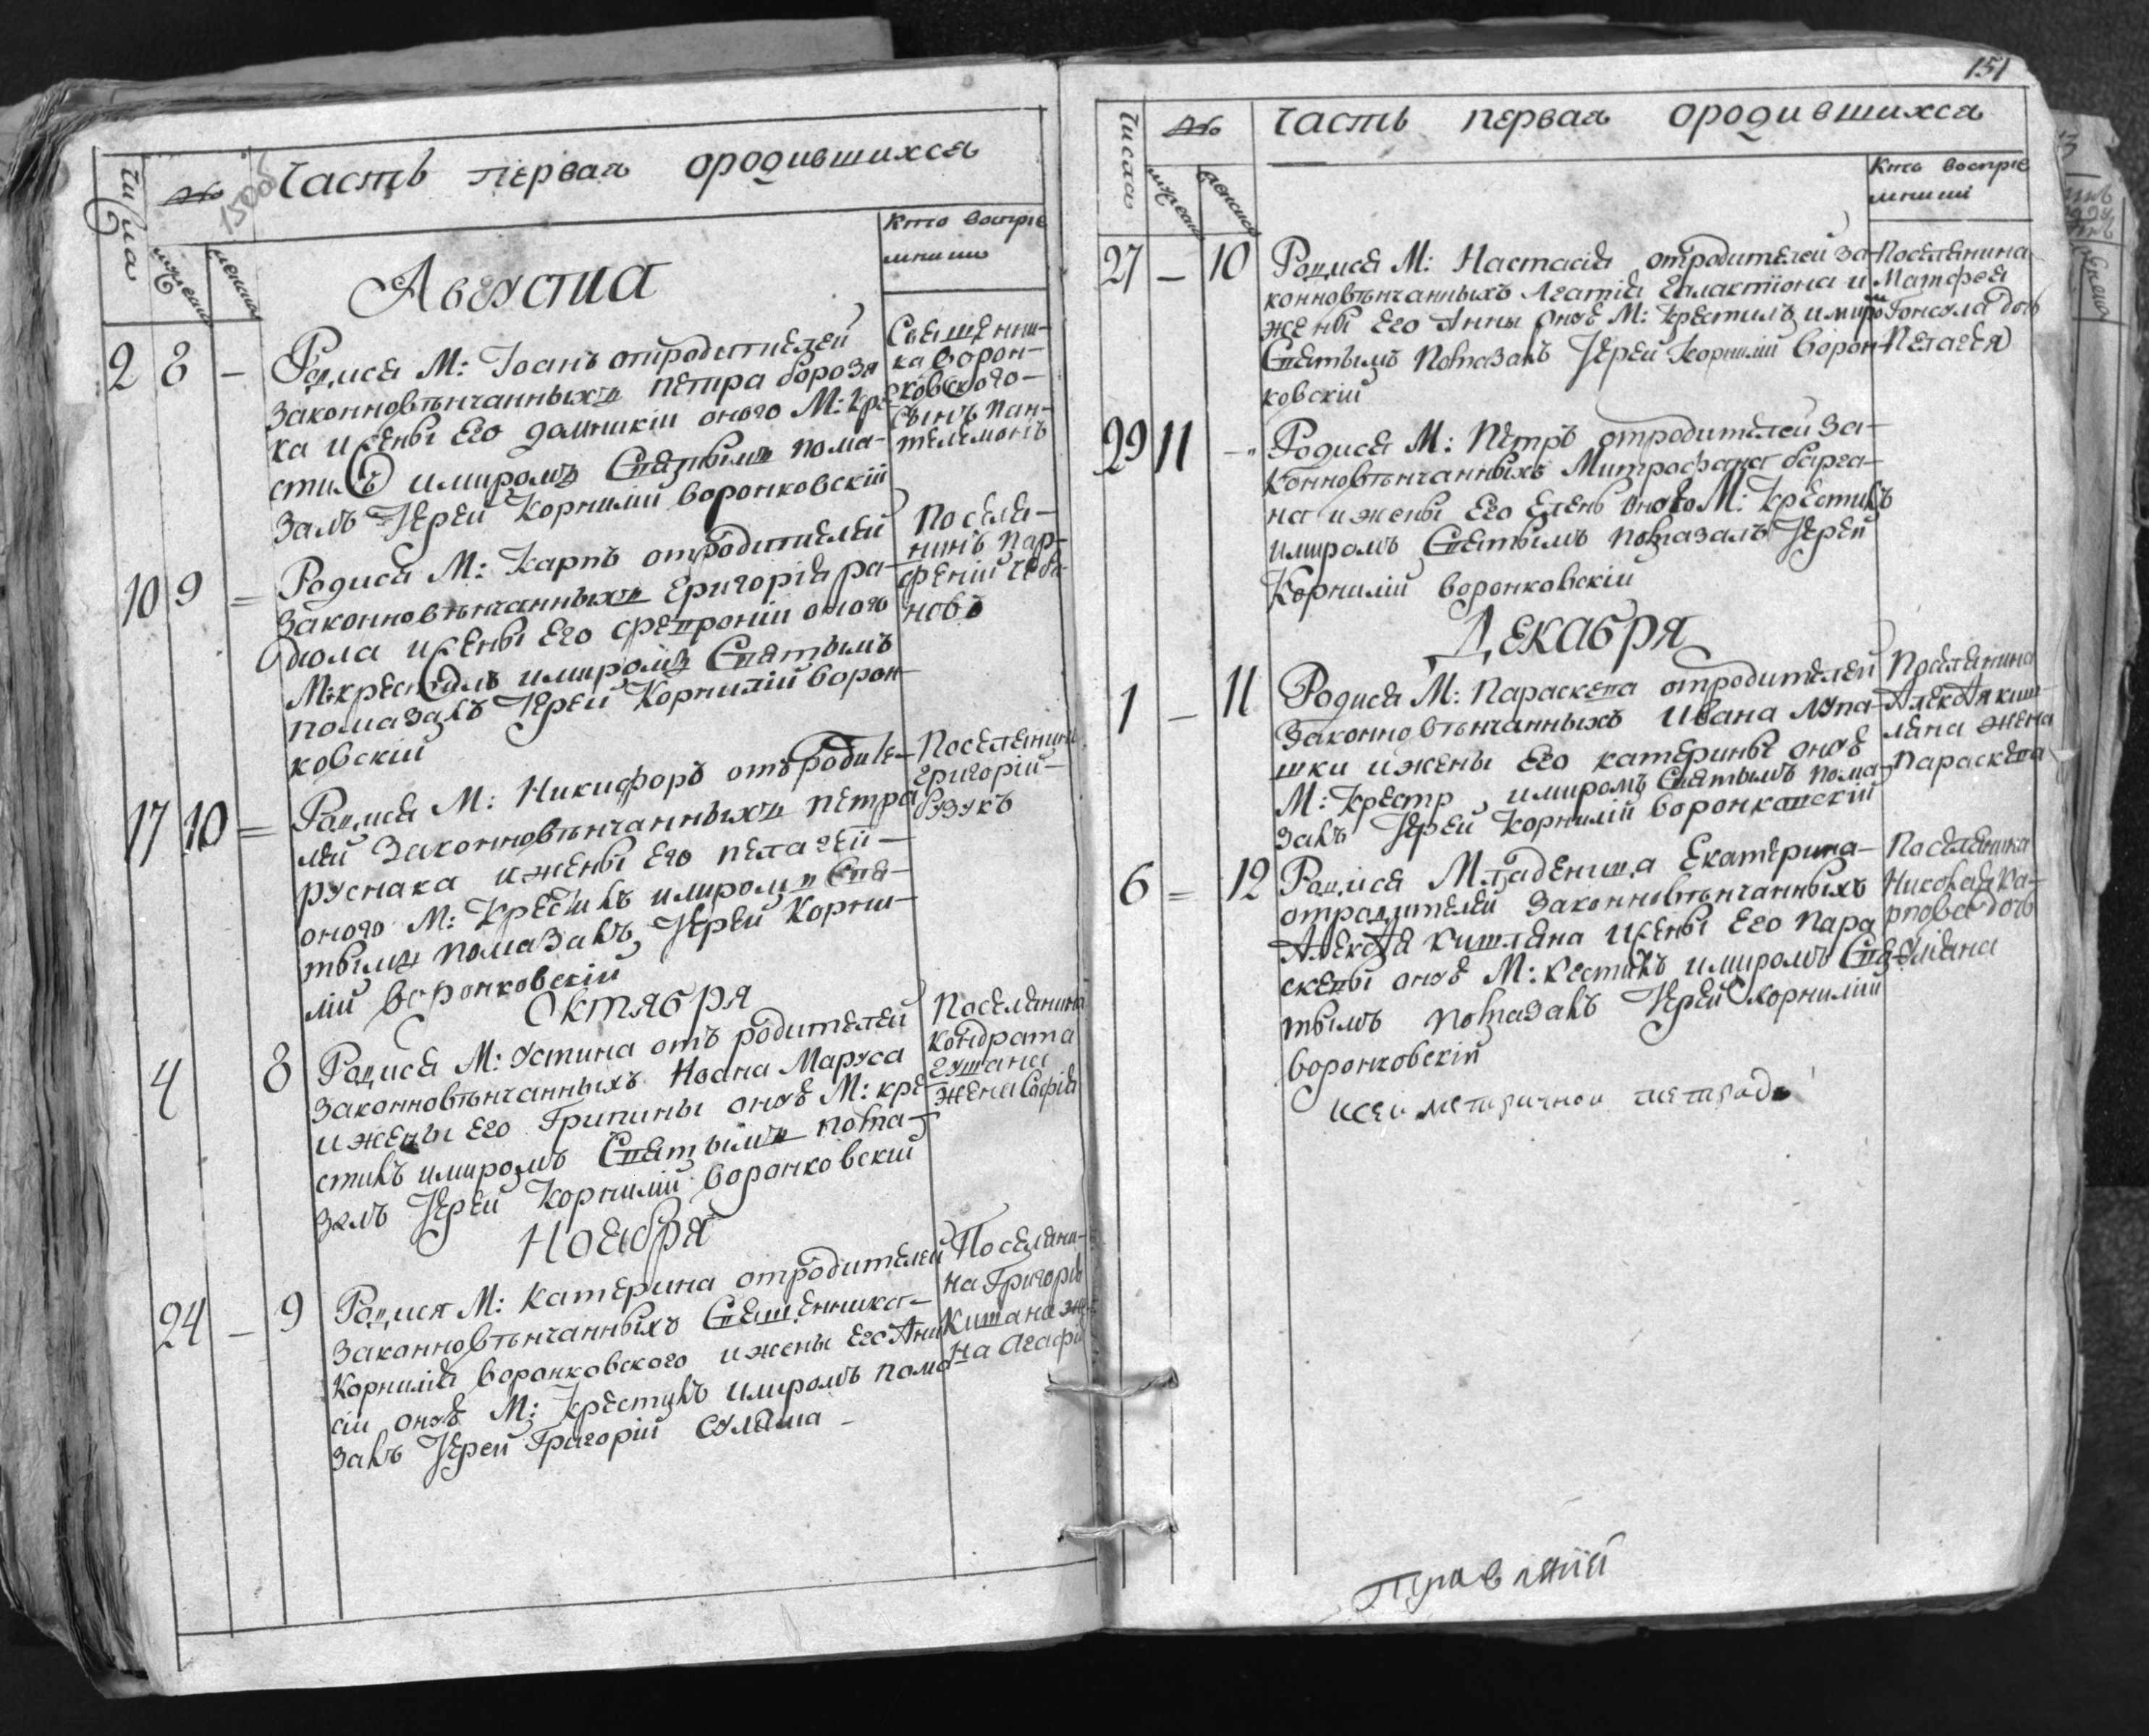 150об
Числа
№
Часть первая ородившихся
мужеска
женска
Кто воспріе
мники
Августа
2 8 – Родися М: Іоанъ отродителей
законновѣнчанныхъ петра бороз
ка ижены Его домникіи оного М: кре
стилъ имиромъ Святымъ пома-
залъ Іерей Корнилій воронковскій
Свяшенни-
ка ворон-
ковского
Сынъ пан-
телемонъ
10 9 = Родися М: Карпъ отродителей
законновѣнчанныхъ Григорія ра-
дюла ижены Его февроніи оного
М: крестилъ имиромъ Святымъ
помазалъ Іерей Корнилій ворон
ковскій
Поселя-
нинъ пар-
феній
новъ
17 10 = Родися М: Никифоръ отъ родите-
лей Законновѣнчанныхъ петра
руснака ижены Его пелагеи
оного М: Крестилъ имиромъ Свя-
тымъ помазалъ Іерей Корни-
лій воронковскій
Поселянинъ
григорій
бузукъ
Октября
4 8 Родися М: Устина отъ родителей
законновѣнчанныхъ Иоана Маруса
ижены Его Грипины онуѣ М: кре
стилъ имиромъ Святымъ пома-
залъ Іерей Корнилій воронковскій
Поселянина
кондрата
гушана
жена Софія
Ноября
24 – 9 Родися М: Катерина отродителей
законновѣнчанныхъ Свяшенника
Корнилія воронковского ижены Его Ани
сіи онуѣ М: Крестилъ имиромъ пома
залъ Іерей Григорій Сулима
Поселяни-
на Григорія
Кишана же
на Агафія
151
Числа
№
Часть первая ородившихся
мужеска
женска
Кто воспріе
мники
27 – 10 Родися М: Настасія отродителей за-
конновѣнчанныхъ Агатія Галактіона и
жены Его Анны онуѣ М: крестилъ имиромъ
Святымъ помазалъ Іерей Корнилій ворон-
ковскій
Поселянина
Матфея
Гонсула дочь
Пелагея
29 11 – Родися М: Петръ отродителей за-
конновѣнчанныхъ Митрофана барга-
на ижены Его Елены оного М: Крестилъ
имиромъ Святымъ помазалъ Іерей
Корнилій воронковскій
Декабря
1 – 11 Родися М: Параскева отродителей
законновѣнчанныхъ Ивана Лупа-
шки ижены Его катерины онуѣ
М: Крестр имиромъ Святымъ пома-
залъ Іерей Корнилій воронковскій
Поселянина
Алексѧ киш
ляна жена
параскева
6 = 12 Родися Младеница Екатерина
отродителей законновѣнчанныхъ
Алексѧ Кишляна ижены Его Пара
скевы онуѣ М: кестилъ имиромъ Свя
тымъ помазалъ Іерей Корнилій
воронковскій
Поселянина
Николая Ка-
рпова дочь
ксеи метричнои тетради
Правлѣній